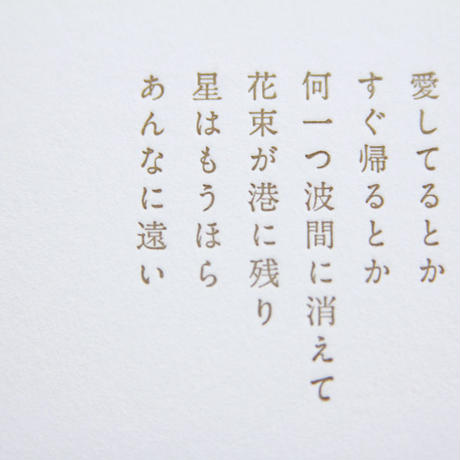 愛してるとか
すぐ帰るとか
何一つ波間に消えて
花束が港に残り
星はもうほら
あんなに遠い